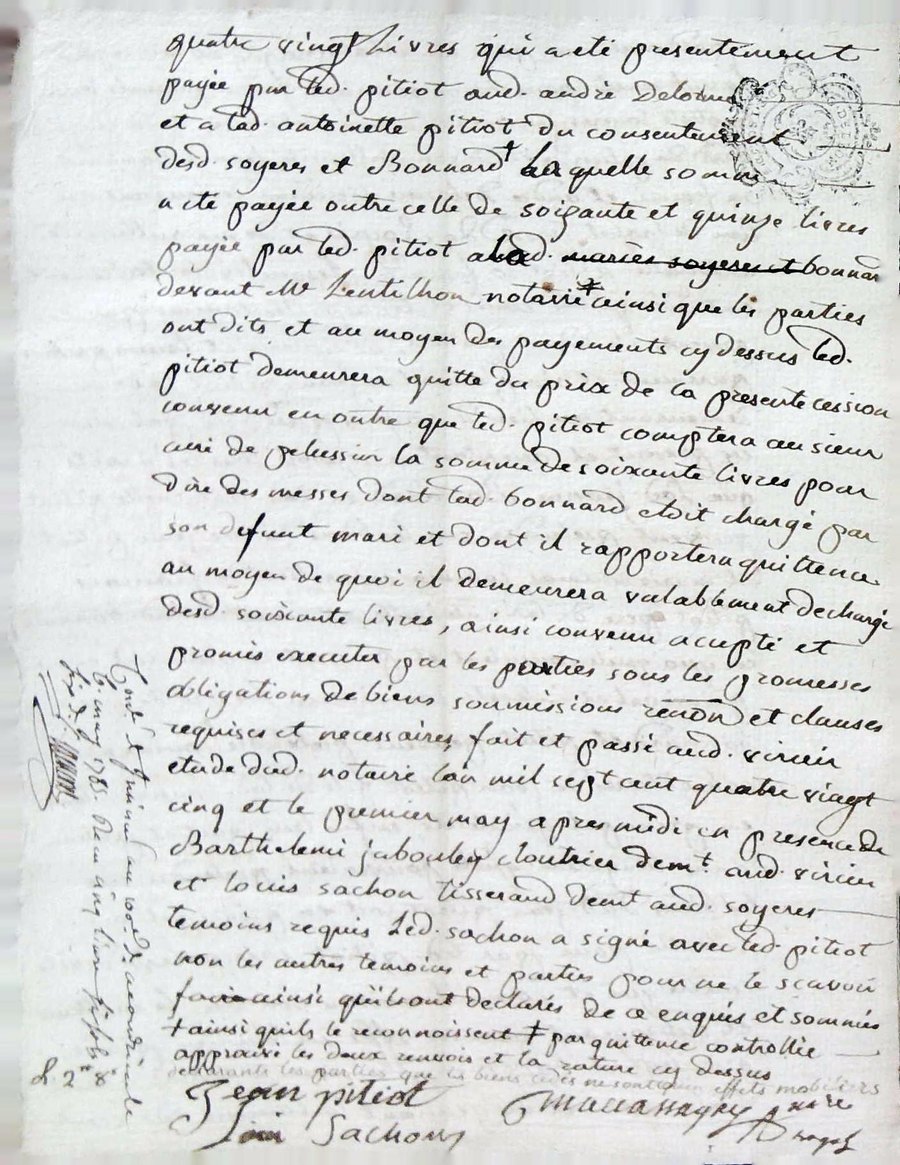 quatre vingt Livres qui a eté presentement
payée par led. pitiot aud. andré Delorme
et a lad. antoinette pitiot du consentement
desd. soyeres et Bonnard † la quelle somme
a eté payée outre celle de soixante et quinze livres
payée par led. pitiot a lad. mariés soyeres et bonnar
devant Me Lentilhon notaire ‡ ainsi que les parties
ont dits et au moyen des payements cy dessus led.
pitiot demeurera quitte du prix de la presente cession
convenu en outre que led. pitiot comptera au sieur
curé de pelussin la somme de soixante livres pour
dire des messes dont lad. bonnard etoit chargé par
son defunt mari et dont il rapportera quittence
au moyen de quoi il demeurera valablement dechargé
desd. soixante livres, ainsi convenu accupté et
promis executer par les parties sous les promesses
obligations de biens soumissions renon et clauses
requises et necessaires, fait et passé aud. virieu
etude dud. notaire l'an mil sept cent quatre vingt
cinq et le premier may apres midi en presence de
Barthelemi jabouley cloutrier demt. aud. virieu
et louis sachon tisserand demt aud. soyeres
temoins requis Led. sachon a signé avec led. pitiot
non les autres temoins et parties pour ne le scavoir
faire ainsi qu'ils ont declarés de ce enquis et sommés
† ainsi quils le reconnoissent ‡ par quittence controllée
approuvé les deux renvois et la rature cy dessus
declarants les parties que les biens cedés ne sont aux effets mobiliers
Jean pitiot
Sachon
may 1785. Recu cinq livres